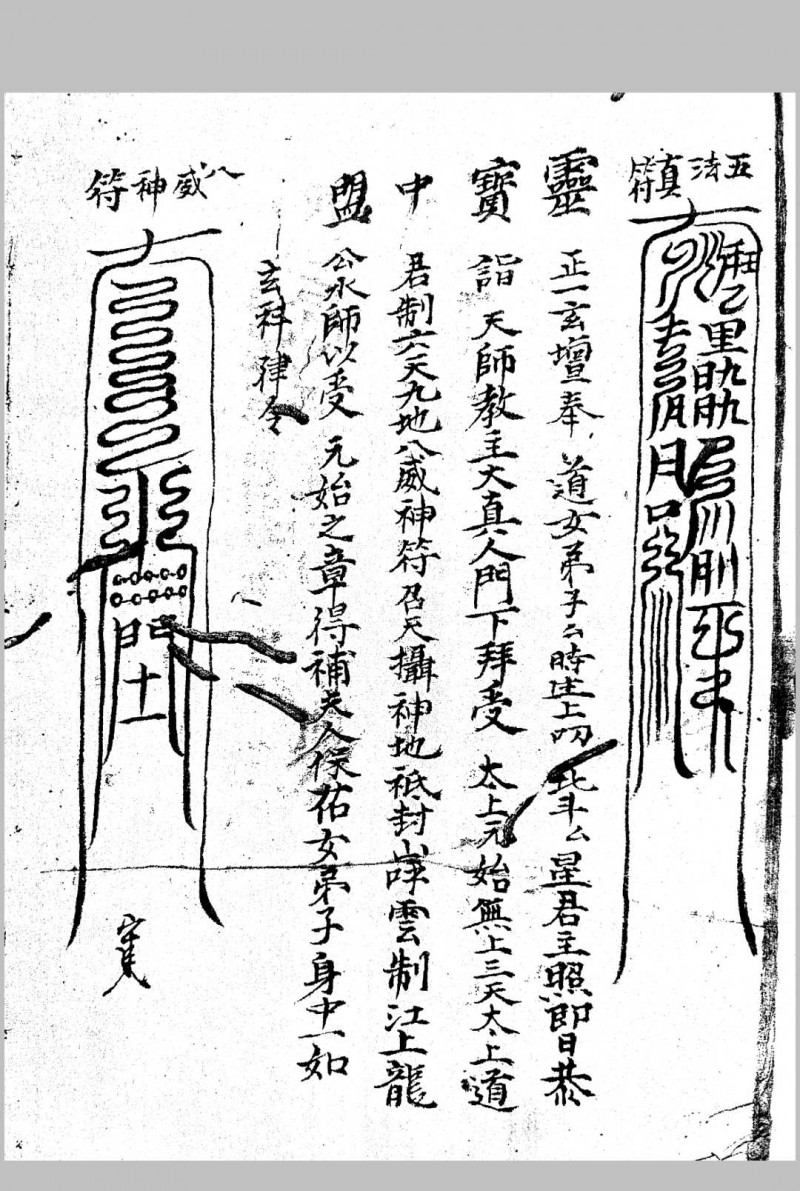 五法真符
靈 正一玄壇奉道女弟子厶時生上叩北斗厶星君主照即日恭
寳 詣天師教主大真人門下拜受太上元始無上三天太上道
中 君制六天九地八威神符召天攝神地祇封山呼雲制江上龍
盟 公水師以受元始之章得補夫人保祐女弟子身中一如
玄科律令
八威神符